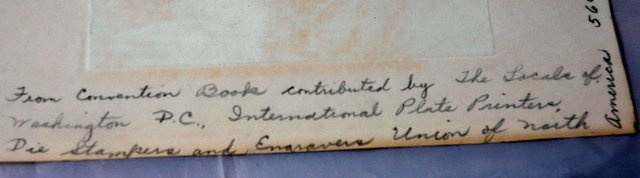 From Convention Book contributed by The Locals of
Washington D.C., International Plate Printers,
Die Stampers and Engravers Union of North
America